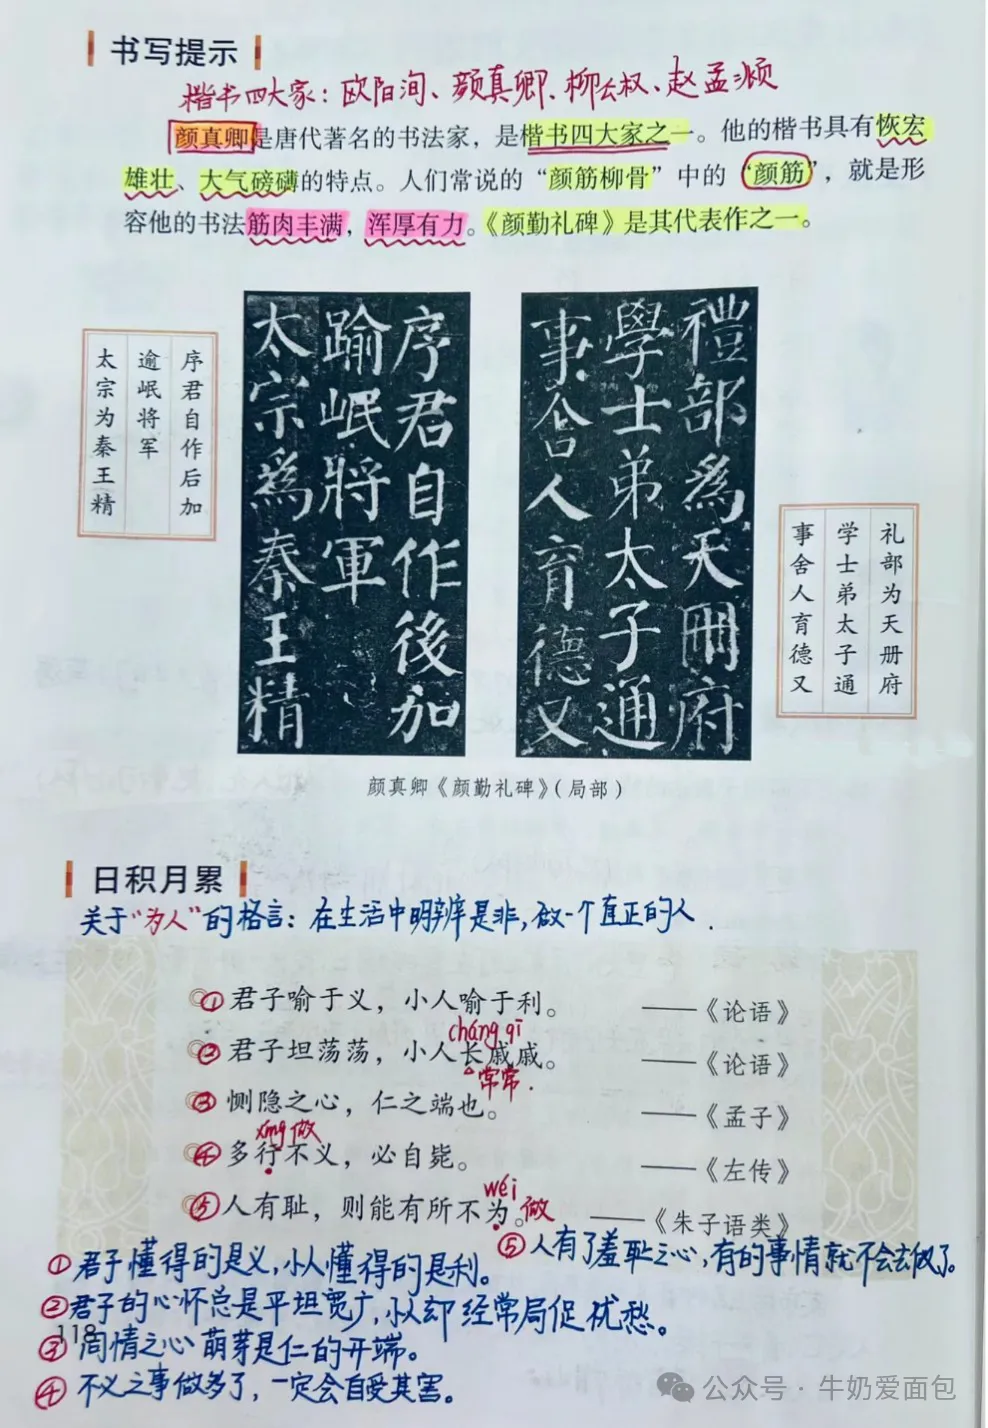 书写提示
楷书四大家：欧阳洵、颜真卿、柳公权、赵孟頫
颜真卿是唐代著名的书法家，是楷书四大家之一。他的楷书具有恢宏
雄壮、大气磅礴的特点。人们常说的“颜筋柳骨”中的“颜筋”，就是形
容他的书法筋肉丰满，浑厚有力。《颜勤礼碑》是其代表作之一。
序君自作后加
逾岷将军
太宗为秦王精
序君自作後加
踰岷將軍
太宗爲秦王精
禮部爲天冊府
學士弟太子通
事舍人育德又
礼部为天册府
学士弟太子通
事舍人育德又
颜真卿《颜勤礼碑》（局部）
日积月累
关于“为人”的格言：在生活中明辨是非，做一个真正的人．
①君子喻于义，小人喻于利。 ——《论语》
cháng qī
②君子坦荡荡，小人长戚戚。 ——《论语》
常常．
③恻隐之心，仁之端也。 ——《孟子》
xíng 做
④多行不义，必自毙。 ——《左传》
wéi
⑤人有耻，则能有所不为。做 ——《朱子语类》
⑤人有了羞耻之心，有的事情就不会去做了。
①君子懂得的是义，小人懂得的是利。
②君子的心怀总是平坦宽广，小人却经常局促忧愁。
118
③同情之心萌芽是仁的开端。
④不义之事做多了，一定会自受其害。
公众号·牛奶爱面包